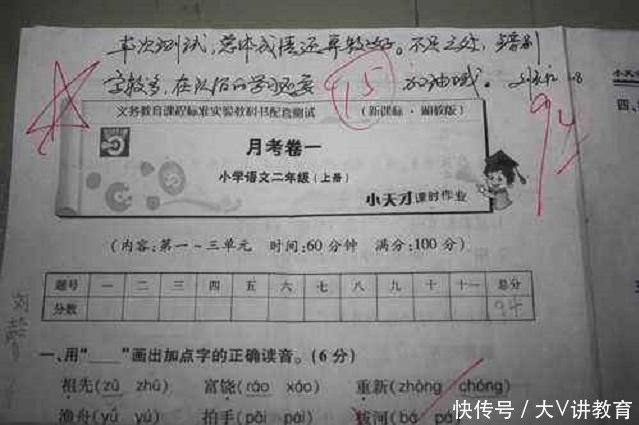 本次测试，总体成绩还算较好。不足之处，错别
字较多，在以后的学习还要 加油哦。
15
94
义务教育课程标准实验教科书配套测试 （新课标·湘教版）
月考卷一
小学语文二年级（上册）
小天才课时作业
（内容:第一～三单元 时间:60分钟 满分:100分）
题号 一 二 三 四 五 六 七 八 九 十 十一 总分
分数 94
一、用“___”画出加点字的正确读音。（6分）
祖先(zǔ zhǔ) 富饶(ráo xáo) 重新(zhòng chóng)
渔舟(yǔ yú) 拍手(pāi pái) 拔河(bá pá)
小天
四、
快传号／大V讲教育